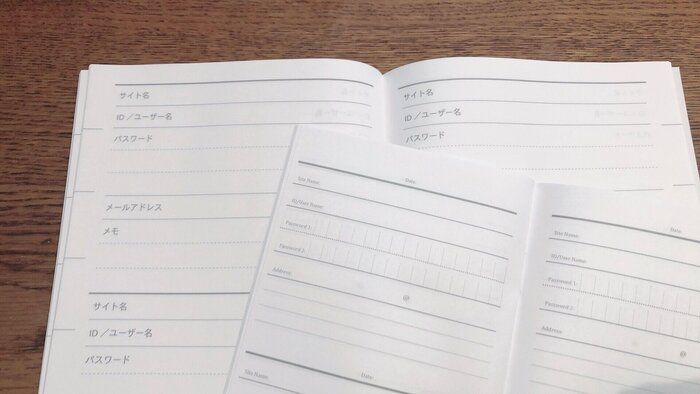 サイト名
ID／ユーザー名
パスワード
メールアドレス
メモ
サイト名
ID／ユーザー名
パスワード
サイト名
ID／ユーザー名
パスワード
Site Name: Date:
ID/User Name:
Password 1:
Password 2:
Address:
@
Site Name: Date:
Site Name: Date:
ID/User Name:
Password 1:
Password 2:
Address:
@